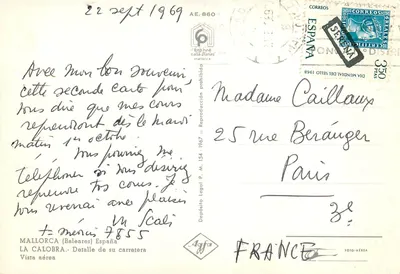 22 sept 1969
AE. 860
Avec mon bon souvenir,
cette seconde carte pour
vous dire que mes cours
reprendront dès le mardi
matin 1er octobre.
Vous pouvez me
téléphoner si vous désirez
reprendre vos cours, je
vous reverrai avec plaisir
7855
MALLORCA (Baleares) España
LA CALOBRA.- Detalle de su carretera
Vista aérea
Depósito Legal P. M. 154 - 1967 - Reproducción prohibida
Agfa
CORREO
ESPAÑA
3'50
PTAS
DIA MUNDIAL DEL SELLO 1968
SERENA
Madame Cailloux
25 rue Béranger
Paris
3e
FRANCE